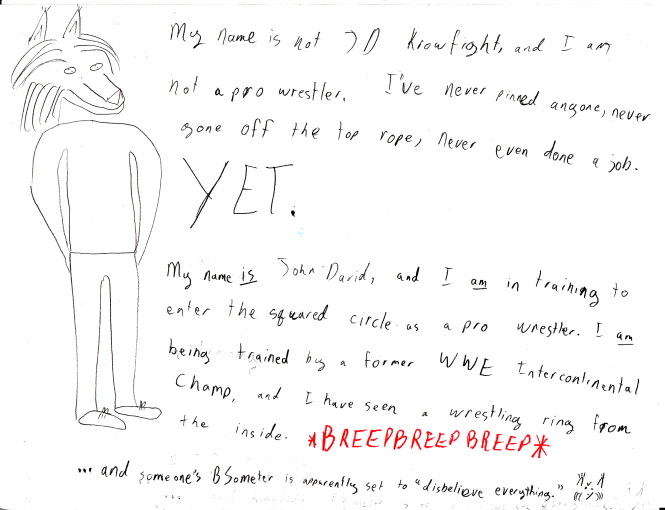 My name is not JD Krowfright, and I am
not a pro wrestler. I've never pinned anyone, never
gone off the top rope, never even done a job.
YET.
My name is John David, and I am in training to
enter the squared circle as a pro wrestler. I am
being trained by a former WWE Intercontinental
Champ, and I have seen a wrestling ring from
the inside. *BREEPBREEPBREEP*
... and someone's BSometer is apparently set to "disbelieve everything."